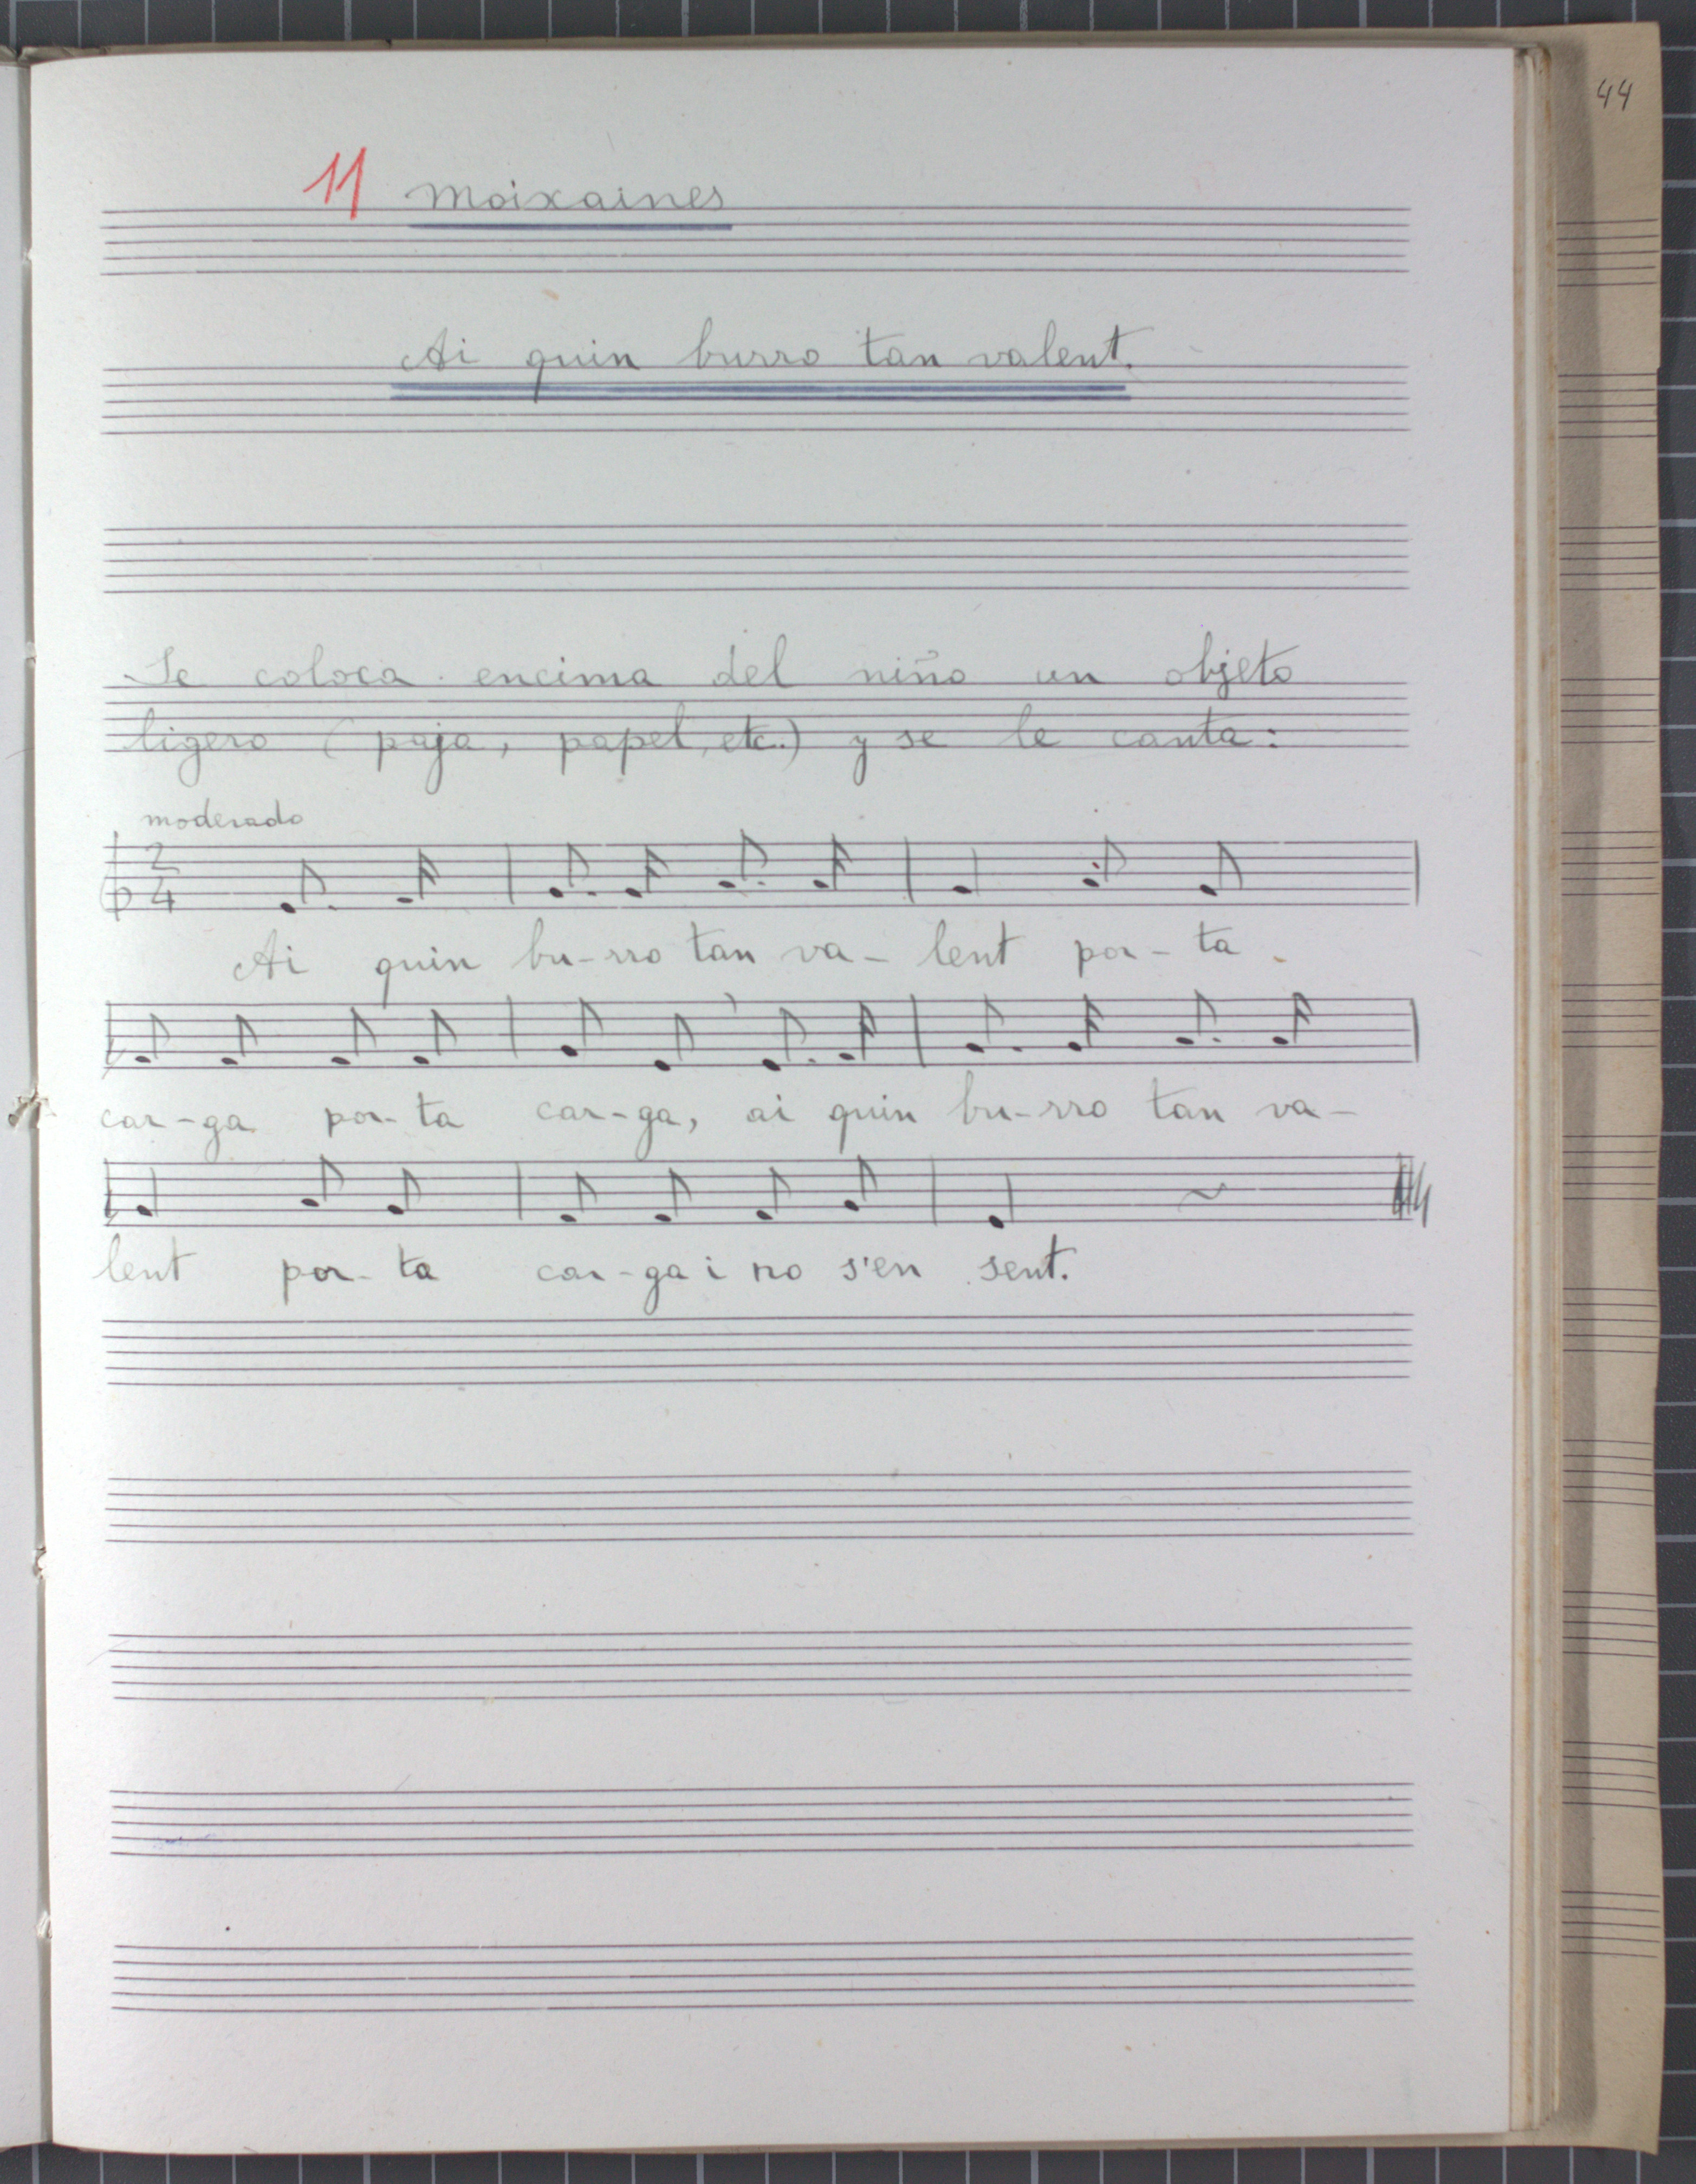 44
11 Moixaines
Ai quin burro tan valent.
Se coloca encima del niño un objeto
ligero (paja, papel, etc.) y se le canta:
moderado
2
4
Ai quin bu-rro tan va- lent por- ta
car-ga por-ta car-ga, ai quin bu-rro tan va-
lent por- ta car-ga i no s'en sent.